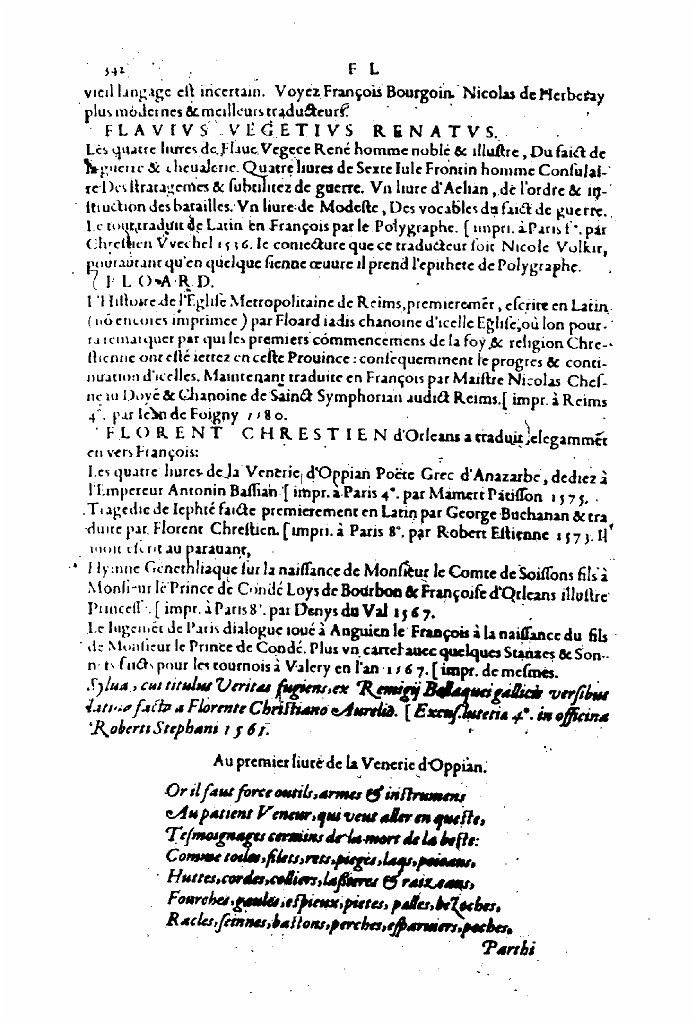 342 F L
vieil langage est incertain. Voyez François Bourgoin. Nicolas de Herberay
plus modernes & meilleurs traducteurs.
FLAVIVS VEGETIVS RENATVS.
Les quatre liures de Flaue Vegece René homme noble & illustre, Du faict de
guerre & cheualerie. Quatre liures de Sexte Iule Frontin homme Consulai-
re Des stratagemes & subtilitez de guerre. Vn liure d'Aelian, de l'ordre & in-
struction des batailles. Vn liure de Modeste, Des vocables du faict de guerre.
Le tout traduit de Latin en François par le Polygraphe. [ impri. à Paris f°. par
Chrestien VVechel 1536. Ie coniecture que ce traducteur soit Nicole Volkir,
pourautant qu'en quelque sienne œuure il prend l'epithete de Polygraphe.
FLOARD.
L'Histoire de l'Eglise Metropolitaine de Reims, premieremēt, escrite en Latin
(nō encores imprimee) par Floard iadis chanoine d'icelle Eglise, où lon pour-
ra remarquer par qui les premiers commencemens de la foy & religion Chre-
stienne ont esté iettez en ceste Prouince: consequemment le progres & conti-
nuation d'icelles. Maintenant traduite en François par Maistre Nicolas Ches-
neau Doyē & Chanoine de Sainct Symphorian audict Reims. [ impr. à Reims
4°. par Iean de Foigny 1580.
FLORENT CHRESTIEN d'Orleans a traduit elegammēt
en vers François:
Les quatre liures de la Venerie d'Oppian Poëte Grec d'Anazarbe, dediez à
l'Empereur Antonin Bassian [ impr. à Paris 4°. par Mamert Patisson 1575.
Tragedie de Iephté faicte premierement en Latin par George Buchanan & tra
duite par Florent Chrestien. [impri. à Paris 8°. par Robert Estienne 1573. Il
auoit escrit au parauant,
Hymne Genethliaque sur la naissance de Monsieur le Comte de Soissons fils à
Monsieur le Prince de Condé Loys de Bourbon & Françoise d'Orleans illustre
Princesse. [ impr. à Paris 8°. par Denys du Val 1567.
Le Iugemēt de Paris dialogue ioué à Anguien le François à la naissance du fils
de Monsieur le Prince de Condé. Plus vn cartel auec quelques Stanzes & Son-
nets faicts pour les tournois à Valery en l'an 1567. [ impr. de mesmes.
Sylua, cui titulus Veritas fugiens, ex Remigij Bellaquei gallicis versibus
latino facta a Florente Christiano Aurelio. [ Excus. Lutetia 4°. in officina
Roberti Stephani 1561.
Au premier liure de la Venerie d'Oppian.
Or il faut force outils, armes & instrumens
Au patient Veneur, qui veut aller en queste,
Tesmoignages certains de la mort de la beste:
Comme toiles, filets, rets, pieges, laqs, panneaus,
Huttes, cordes, colliers, lassieres & raizeaus,
Fourches, gaules, espieux, pieces, palles, bezoches,
Racles, seinnes, bastons, perches, esparuiers, poches,
Parthi